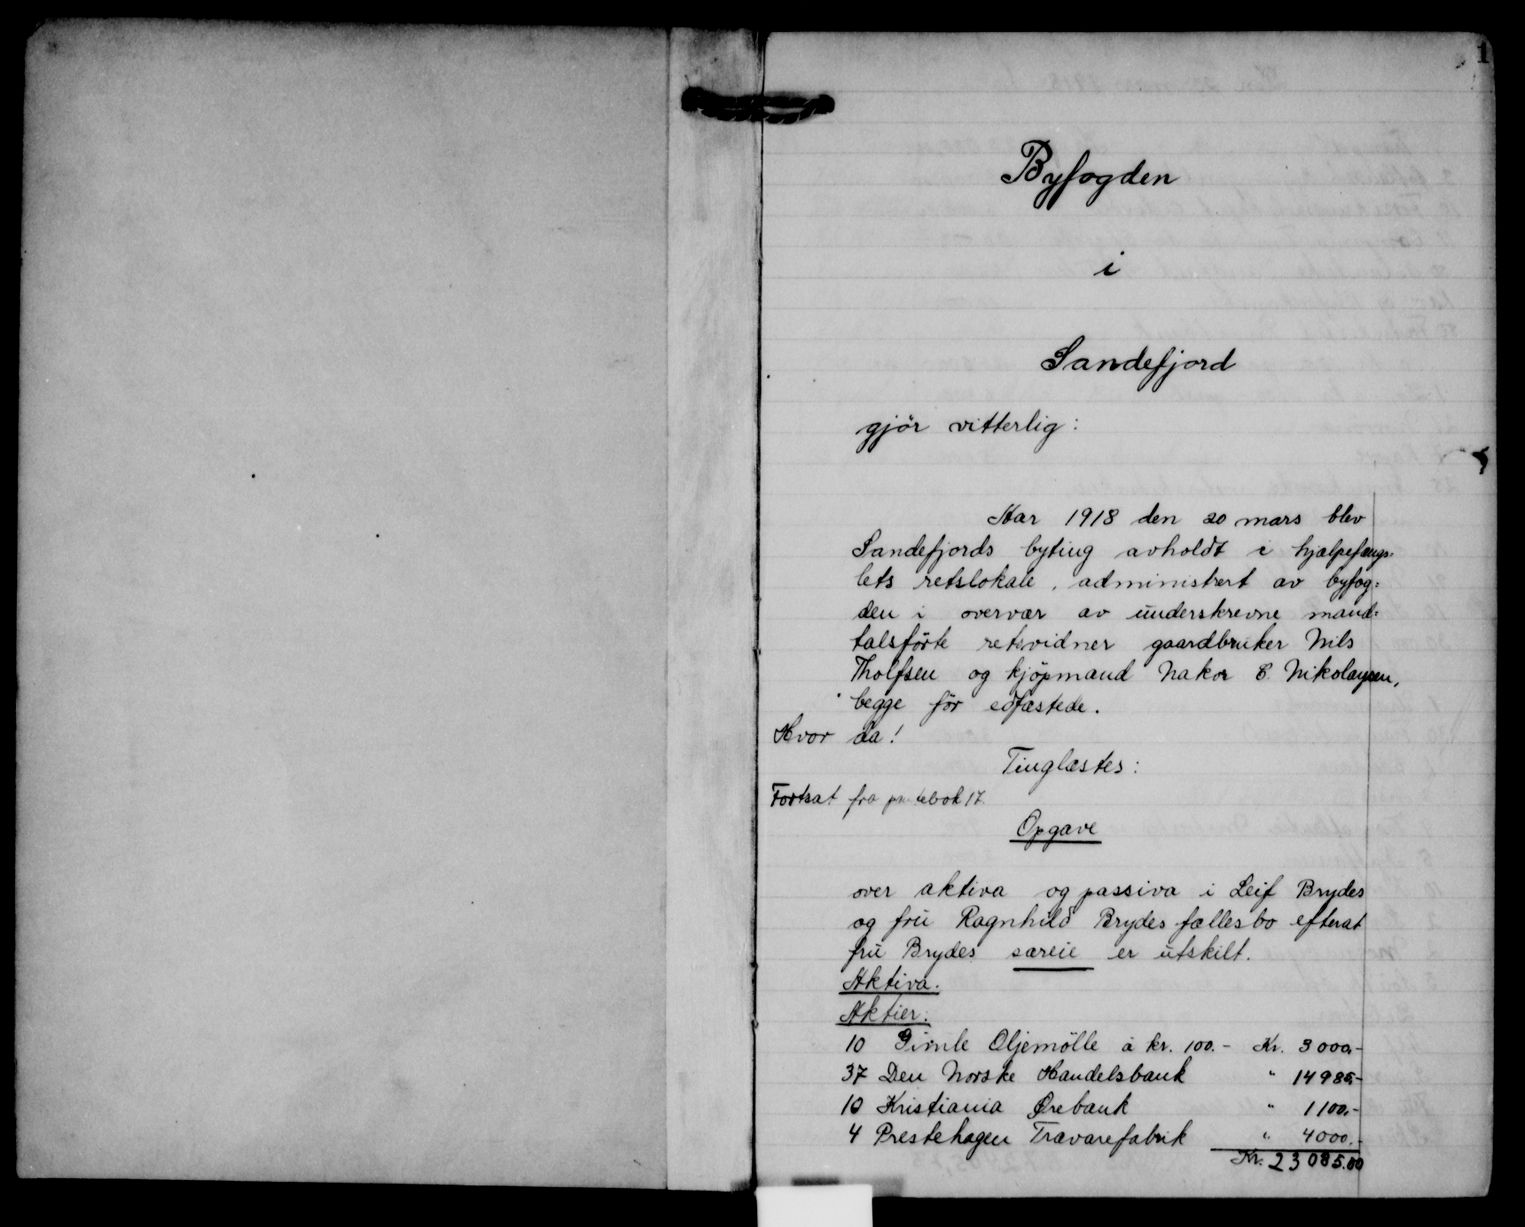 1
Byfogden
i
Sandefjord
gjör vitterlig:
Aar 1918 den 20 mars blev
Sandefjords byting avholdt i hjælpefængs=
lets retslokale, administrert av byfog=
den i overvær av underskrevne mand=
talsförte retsvidner gaardbruker Nils
Tholfsen og kjöpmand Hakon C. Nikolaysen,
begge för edfæstede.
Hvor da!
Tinglæstes:
Fortsat fra pantebok 17.
Opgave
over aktiva og passiva i Leif Brydes
og fru Ragnhild Brydes fællesbo efterat
fru Brydes særeie er utskilt.
Aktiva.
Aktier:
10 Gimle Oljemölle à kr. 100.- Kr. 3000,-
37 Den Norske Handelsbank " 14985,-
10 Kristiania Örebank " 1100,-
4 Prestehagen Trævarefabrik " 4000.-
Kr. 23085.00